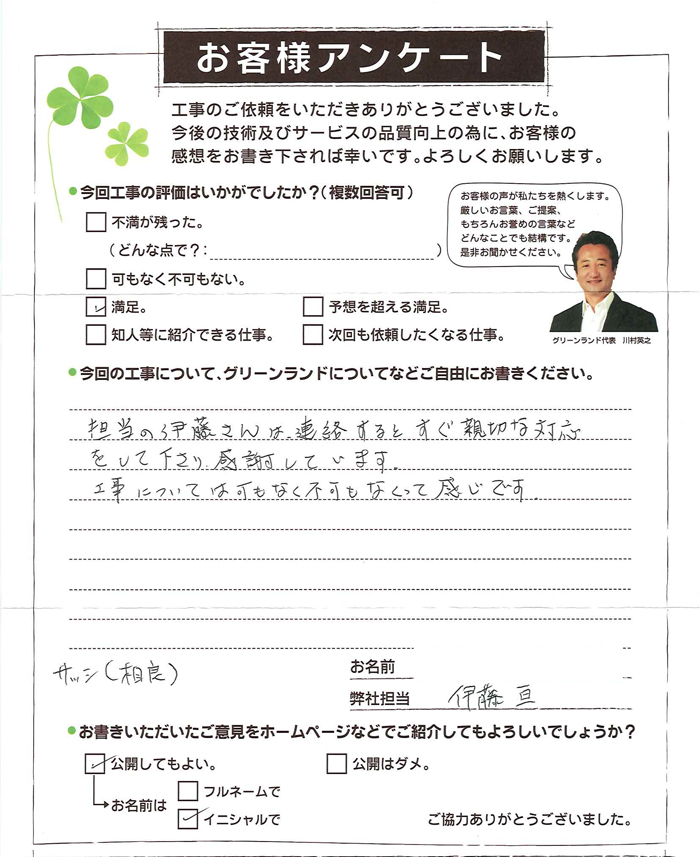 お客様アンケート
工事のご依頼をいただきありがとうございました。
今後の技術及びサービスの品質向上の為に、お客様の
感想をお書き下されば幸いです。よろしくお願いします。
●今回工事の評価はいかがでしたか？(複数回答可)
お客様の声が私たちを熱くします。
厳しいお言葉、ご提案、
もちろんお誉めの言葉など
どんなことでも結構です。
是非お聞かせください。
不満が残った。
(どんな点で？: )
可もなく不可もない。
満足。
予想を超える満足。
知人等に紹介できる仕事。
次回も依頼したくなる仕事。
グリーンランド代表 川村英之
●今回の工事について、グリーンランドについてなどご自由にお書きください。
担当の伊藤さんは、連絡するとすぐ親切な対応
をして下さり、感謝しています。
工事については可もなく不可もなくって感じです。
サッシ(相良)
お名前
弊社担当 伊藤 亘
●お書きいただいたご意見をホームページなどでご紹介してもよろしいでしょうか？
公開してもよい。
公開はダメ。
お名前は
フルネームで
イニシャルで
ご協力ありがとうございました。